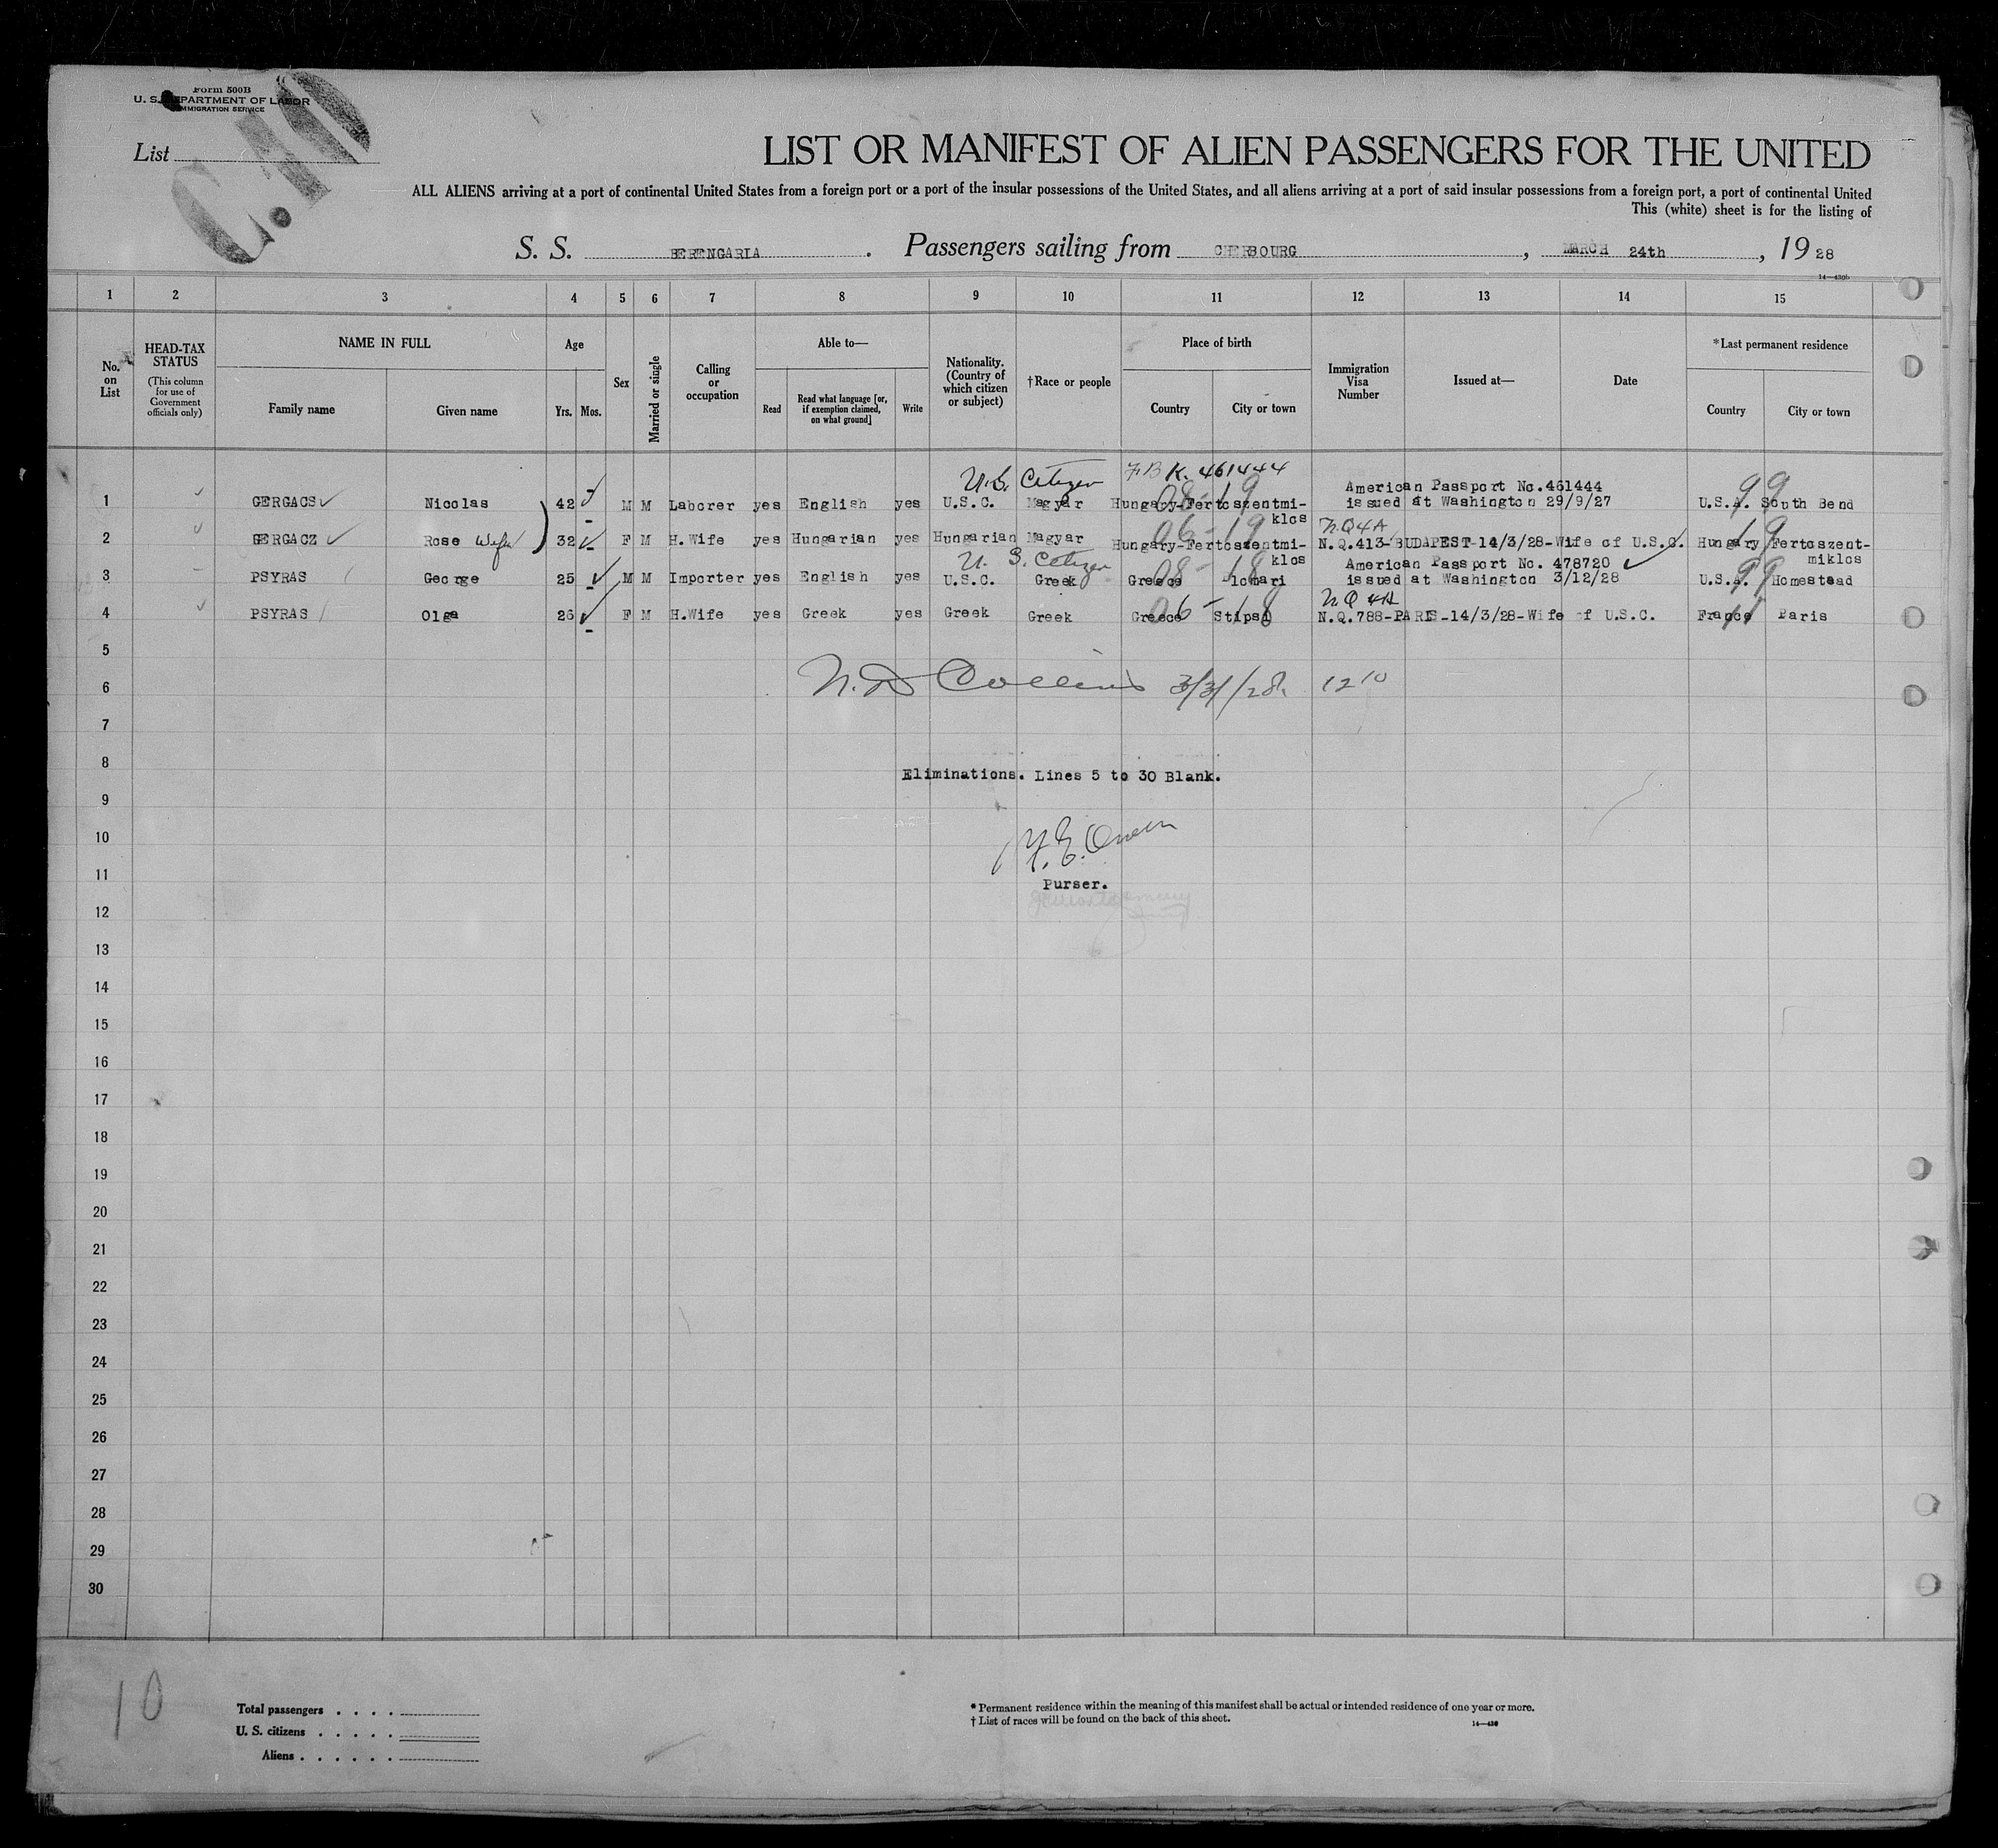 Form 500B
U. S. DEPARTMENT OF LABOR
IMMIGRATION SERVICE
C.10
List
LIST OR MANIFEST OF ALIEN PASSENGERS FOR THE UNITED
ALL ALIENS arriving at a port of continental United States from a foreign port or a port of the insular possessions of the United States, and all aliens arriving at a port of said insular possessions from a foreign port, a port of continental United
This (white) sheet is for the listing of
S. S. BERENGARIA. Passengers sailing from CHERBOURG, MARCH 24th, 1928
14—430b
1 2 3 4 5 6 7 8 9 10 11 12 13 14 15
No. on List
HEAD-TAX STATUS (This column for use of Government officials only)
NAME IN FULL
Family name Given name
Age
Yrs. Mos.
Sex
Married or single
Calling or occupation
Able to—
Read
Read what language [or, if exemption claimed, on what ground]
Write
Nationality. (Country of which citizen or subject)
†Race or people
Place of birth
Country City or town
Immigration Visa Number
Issued at—
Date
*Last permanent residence
Country City or town
U.S. Citizen K. 461444
American Passport No.461444
1 GERGACS Nicolas 42 M M Laborer yes English yes U.S.C. Magyar Hungary-Fertoszentmi- issued at Washington 29/9/27 U.S.A. South Bend
klos N.Q4A
2 GERGACZ Rose Wife 32 F M H.Wife yes Hungarian yes Hungarian Magyar Hungary-Fertoszentmi- N.Q.413-BUDAPEST-14/3/28-Wife of U.S.C. Hungary Fertoszent-
U. S. Citizen klos American Passport No. 478720 miklos
3 PSYRAS George 25 M M Importer yes English yes U.S.C. Greek Greece Plomari issued at Washington 3/12/28 U.S.A. Homestead
N.Q 4A
4 PSYRAS Olga 26 F M H.Wife yes Greek yes Greek Greek Greece Stipsi N.Q.788-PARIS-14/3/28-Wife of U.S.C. France Paris
5
6 Collins 3/31/28. 12 10
7
8
Eliminations. Lines 5 to 30 Blank.
9
10
11
Purser.
12
13
14
15
16
17
18
19
20
21
22
23
24
25
26
27
28
29
30
10
Total passengers
U. S. citizens
Aliens
* Permanent residence within the meaning of this manifest shall be actual or intended residence of one year or more.
† List of races will be found on the back of this sheet.
14—430